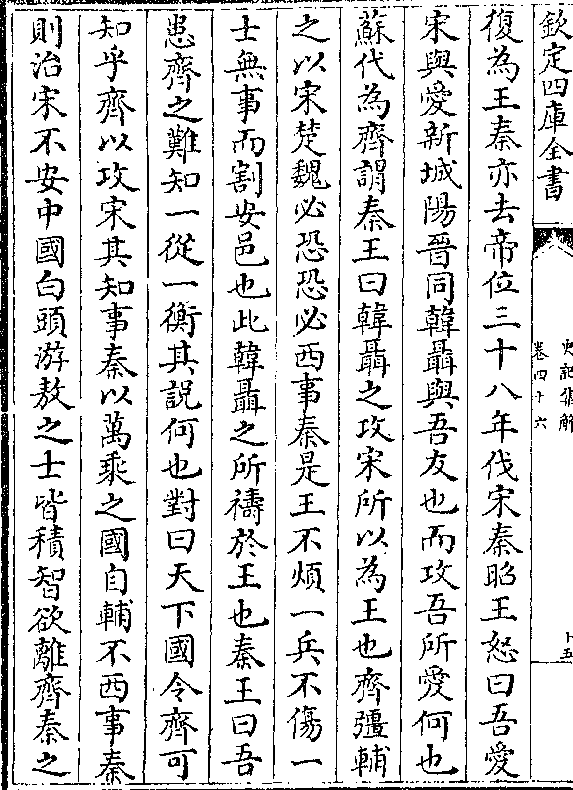 欽定四庫全書
史記集解
卷四十六
十五
復為王秦亦去帝位三十八年伐宋秦昭王怒曰吾愛
宋與愛新城陽晉同韓聶與吾友也而攻吾所愛何也
蘇代為齊謂秦王曰韓聶之攻宋所以為王也齊彊輔
之以宋楚魏必恐恐必西事秦是王不煩一兵不傷一
士無事而割安邑也此韓聶之所禱於王也秦王曰吾
患齊之難知一從一衡其説何也對曰天下國令齊可
知乎齊以攻宋其知事秦以萬乘之國自輔不西事秦
則治宋不安中國白頭游敖之士皆積智欲離齊秦之